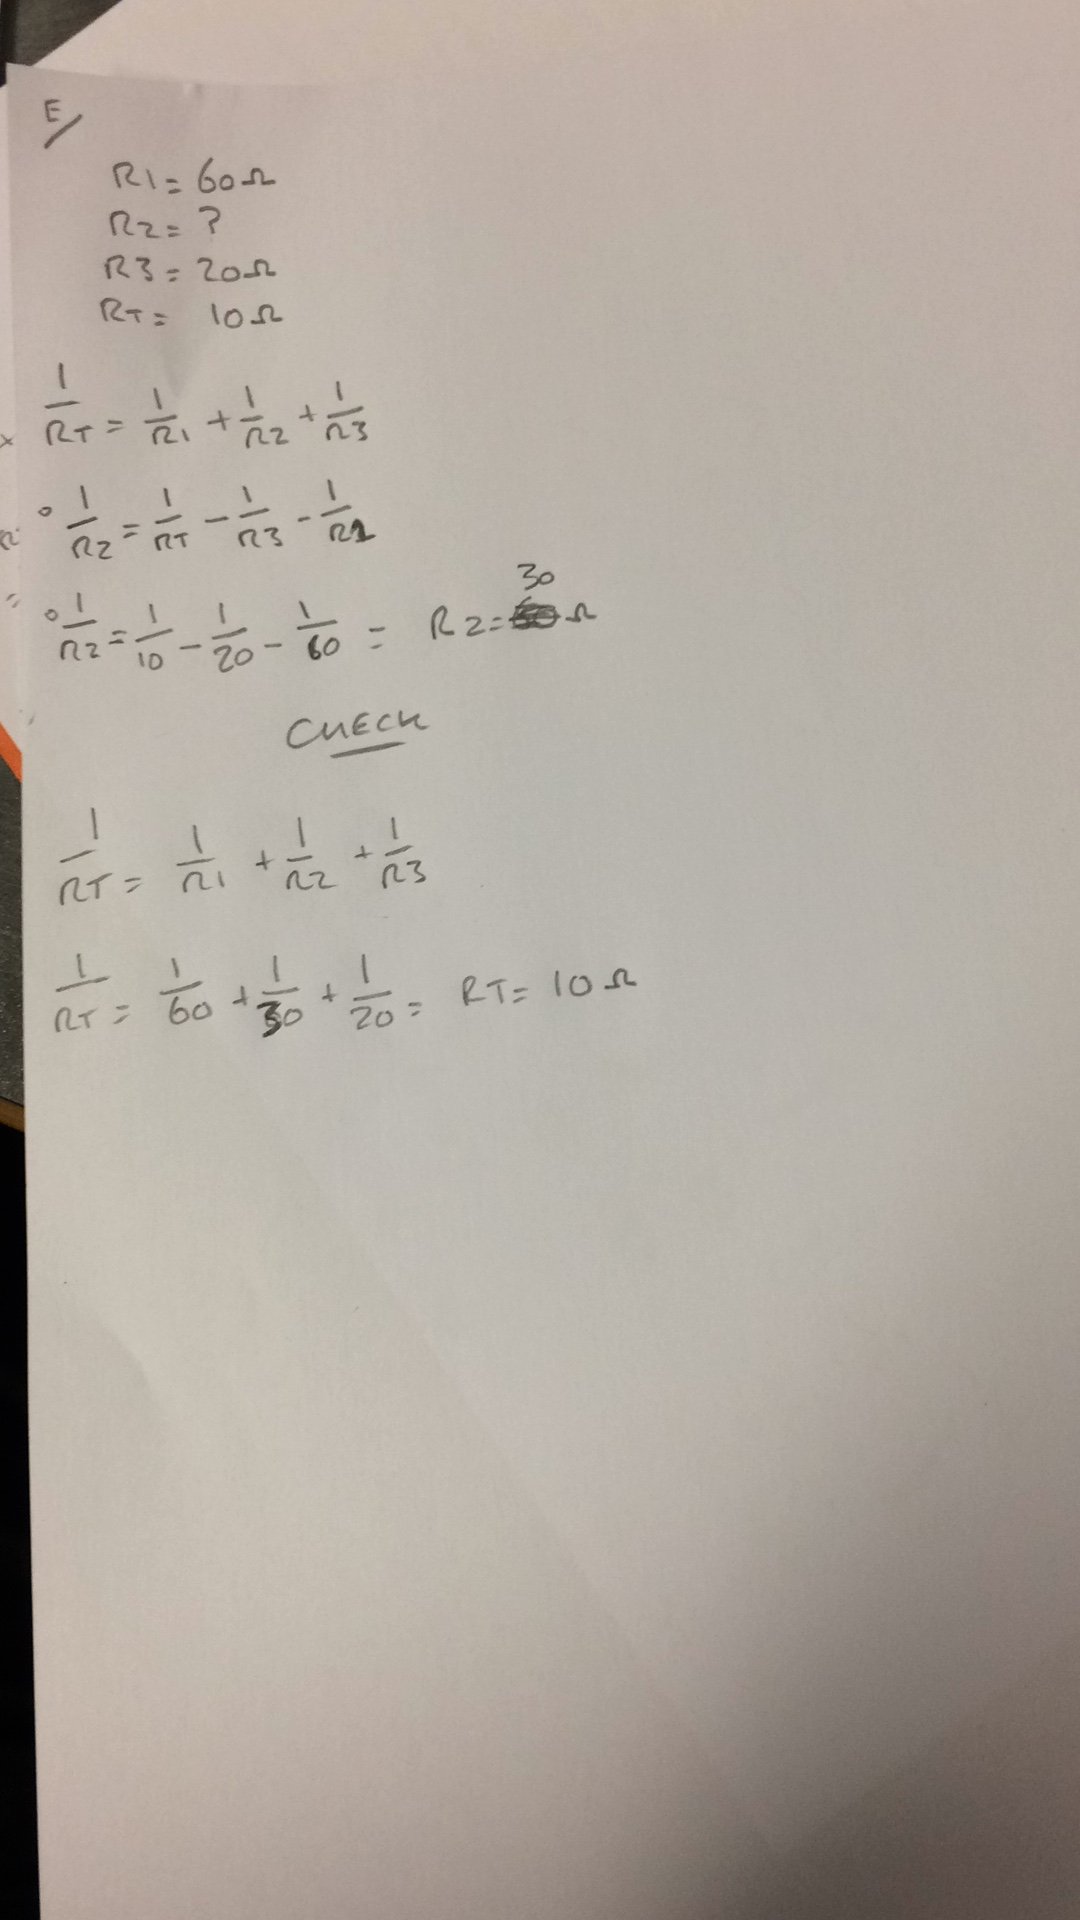 E/
R1 = 60Ω
R2 = ?
R3 = 20Ω
RT = 10Ω
1/RT = 1/R1 + 1/R2 + 1/R3
° 1/R2 = 1/RT - 1/R3 - 1/R1
° 1/R2 = 1/10 - 1/20 - 1/60 = R2 = 30 Ω
CHECK
1/RT = 1/R1 + 1/R2 + 1/R3
1/RT = 1/60 + 1/30 + 1/20 = RT = 10Ω